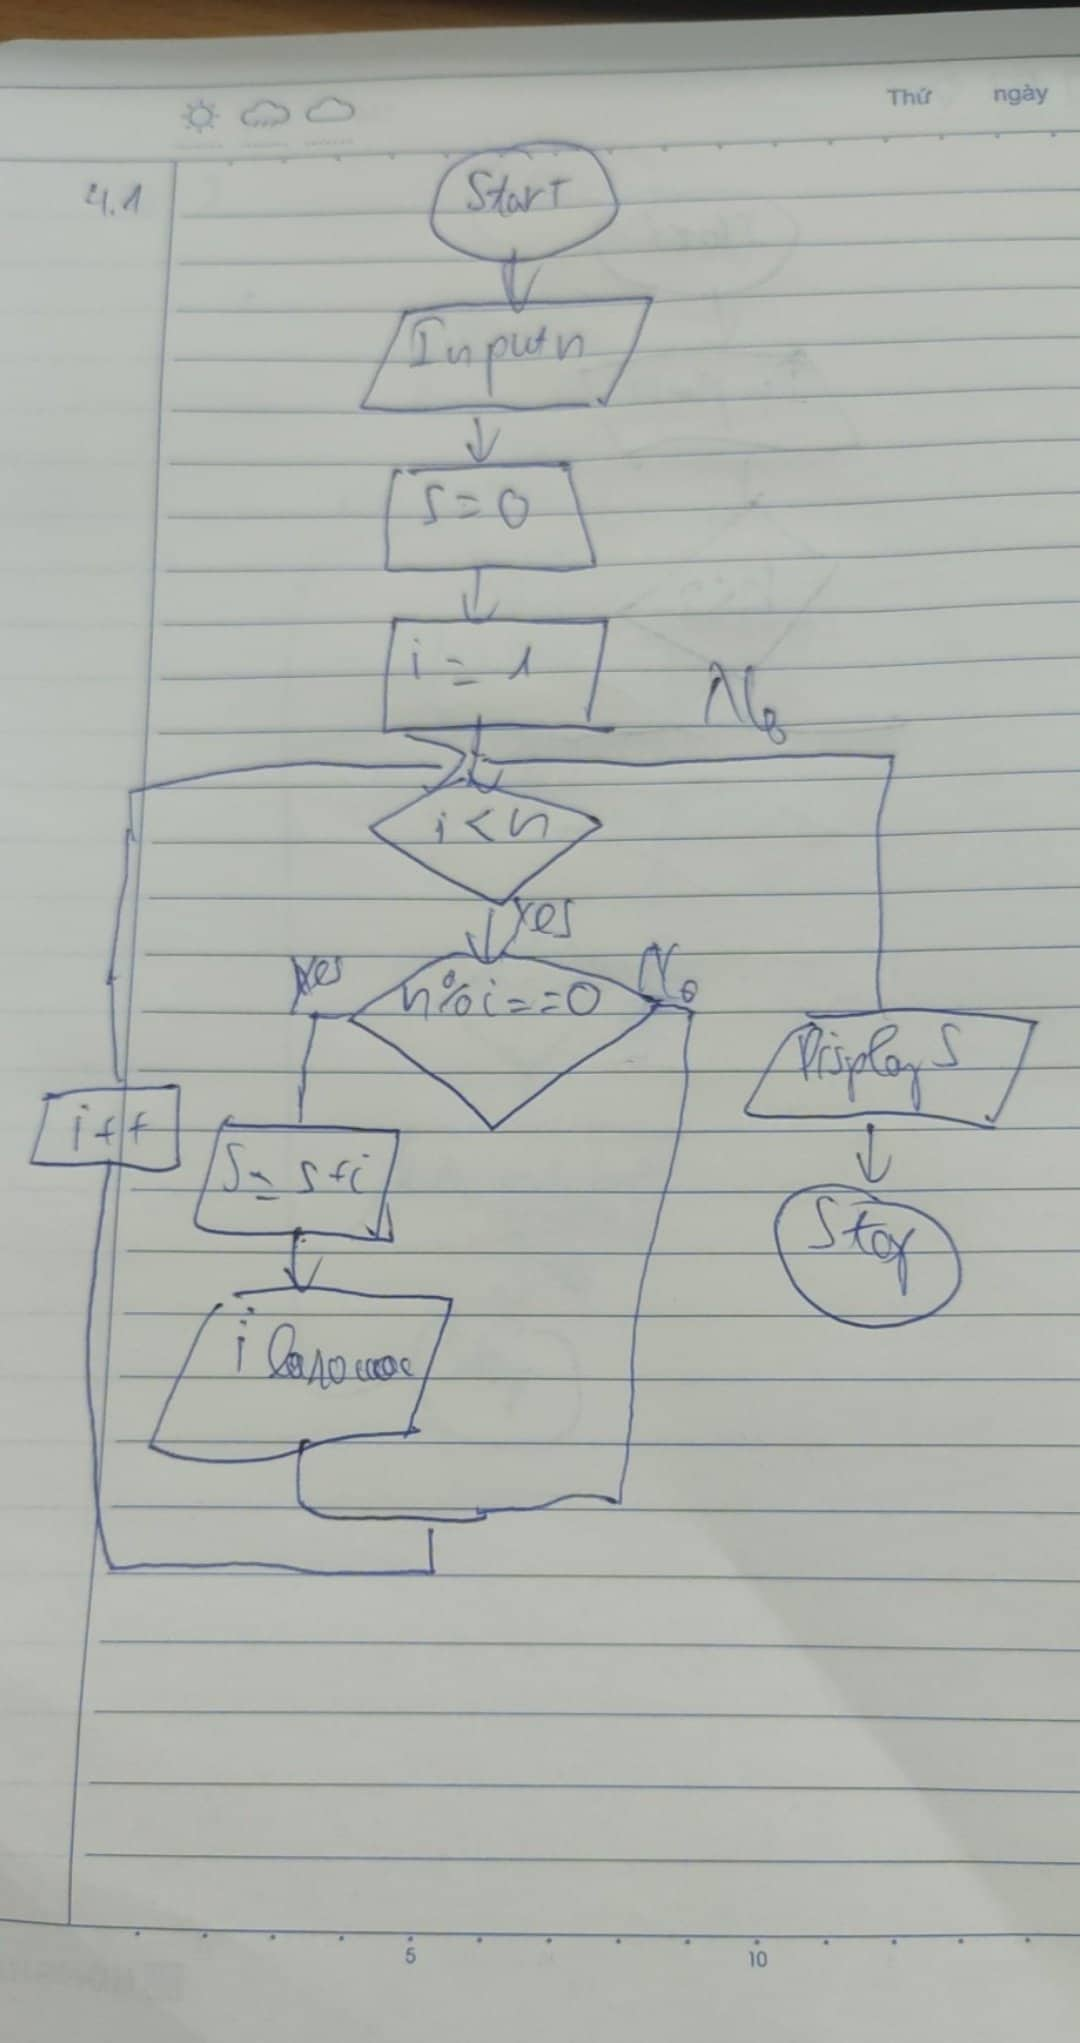 Thứ ngày
4.1
Start
Input n
S = 0
i = 1
No
i < n
Yes
Yes
n%i==0
No
Display S
i++
S = S+i
Stop
i là ước
5 10